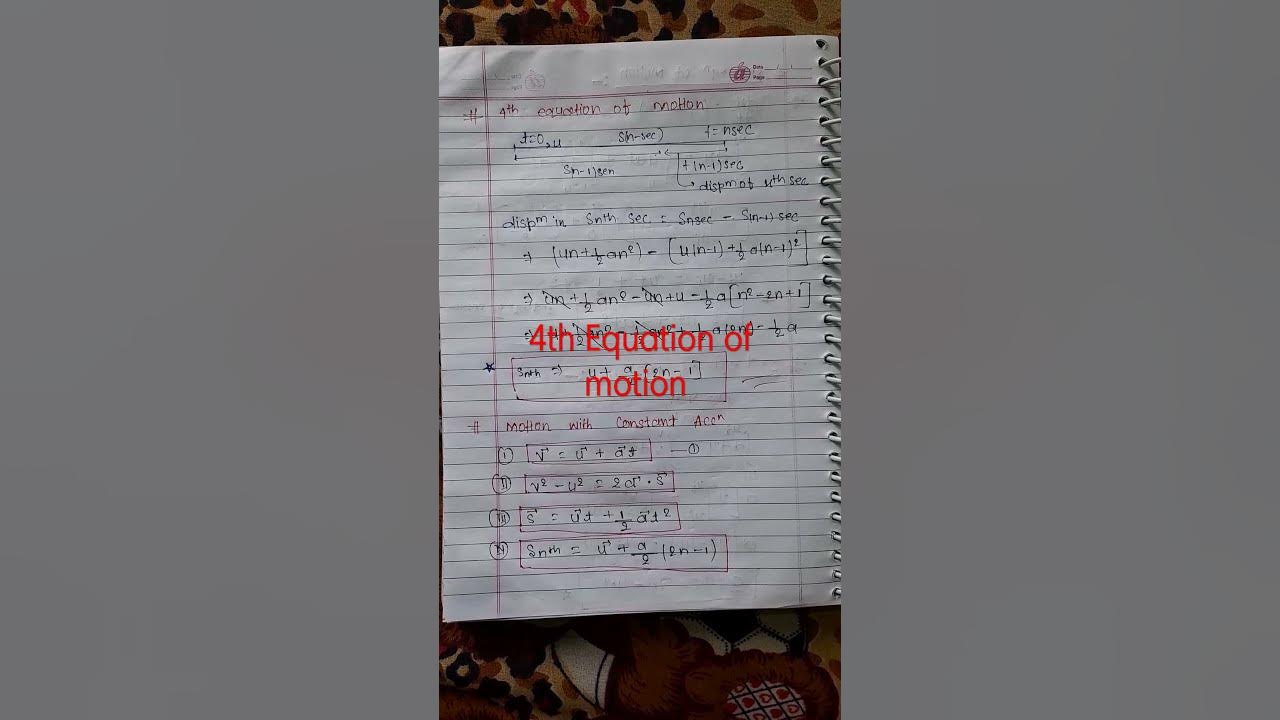 Date / /
Page
# 4th equation of motion
t=0, u S(n-sec) t=nsec
S(n-1)sen t(n-1)sec
→ dispm of nth sec
dispm in Snth sec = Snsec - S(n-1) sec
⇒ (un+½an²) - [u(n-1)+½a(n-1)²]
⇒ un+½an²-un+u-½a[n²-2n+1]
4th Equation of
motion
Snth ⇒ u+ a/2 [2n-1]
# Motion with Constant Accn
(I) v⃗ = u⃗ + a⃗t —①
(II) v²-u² = 2a⃗·s⃗
(III) s⃗ = u⃗t + ½a⃗t²
(IV) Snth = u⃗ + a/2 (2n-1)